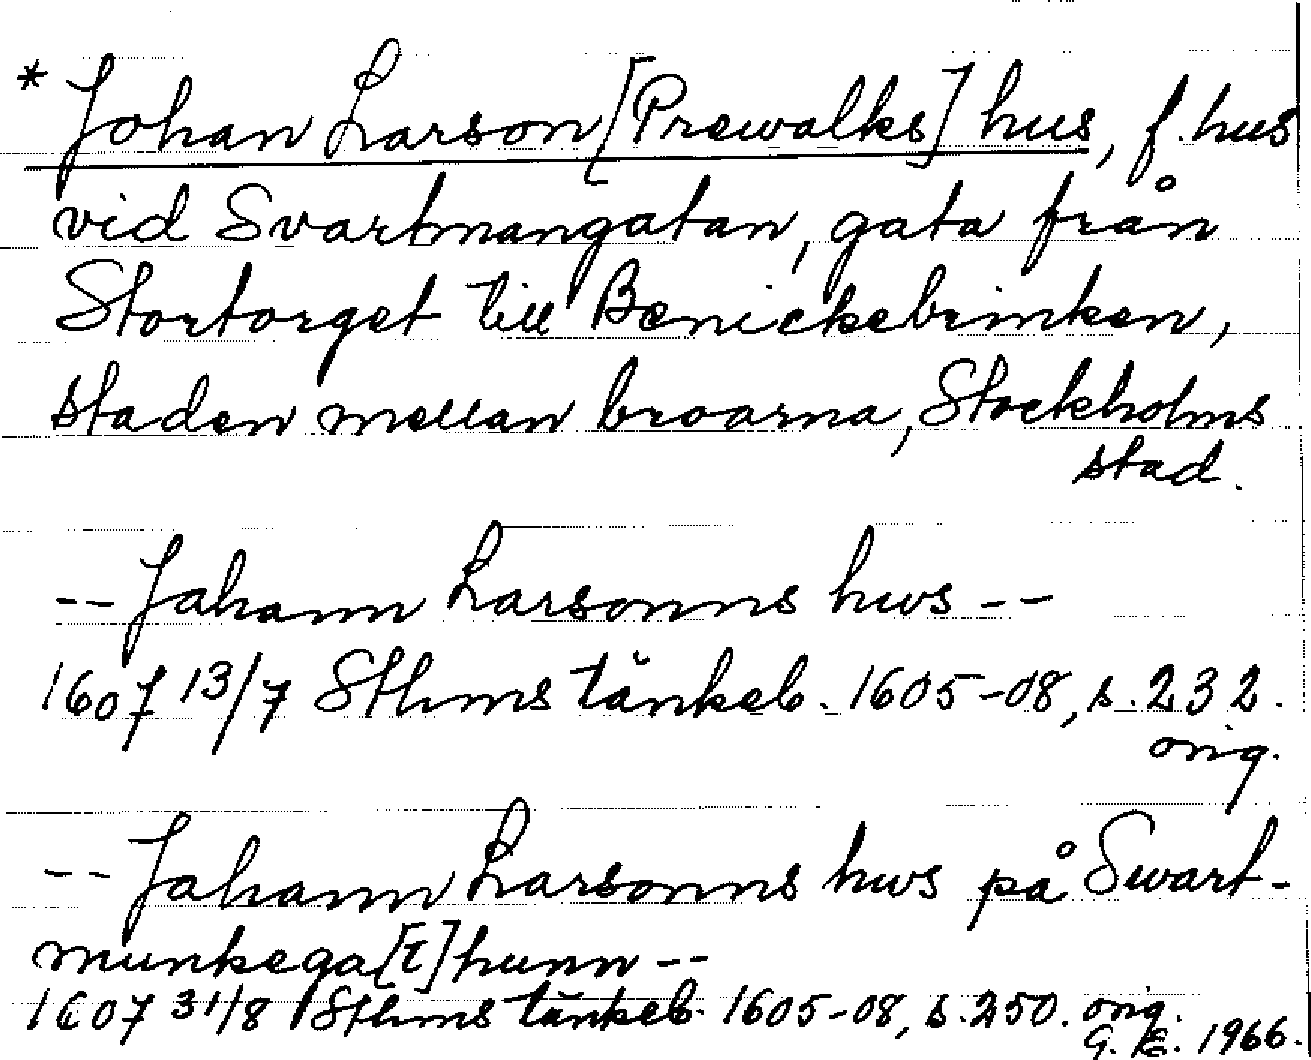 * Johan Larson [Prewalks] hus, f. hus
vid Svartmangatan, gata från
Stortorget till Benickebrinken,
staden mellan broarna, Stockholms
stad.
-- Jahann Larsonns hws --
1607 13/7 Sthms tänkeb. 1605-08, s. 232.
orig.
-- Jahann Larsonns hws på Swart-
munkega[t]hunn --
1607 31/8 Sthms tänkeb. 1605-08, s. 250. orig.
G. E. 1966.